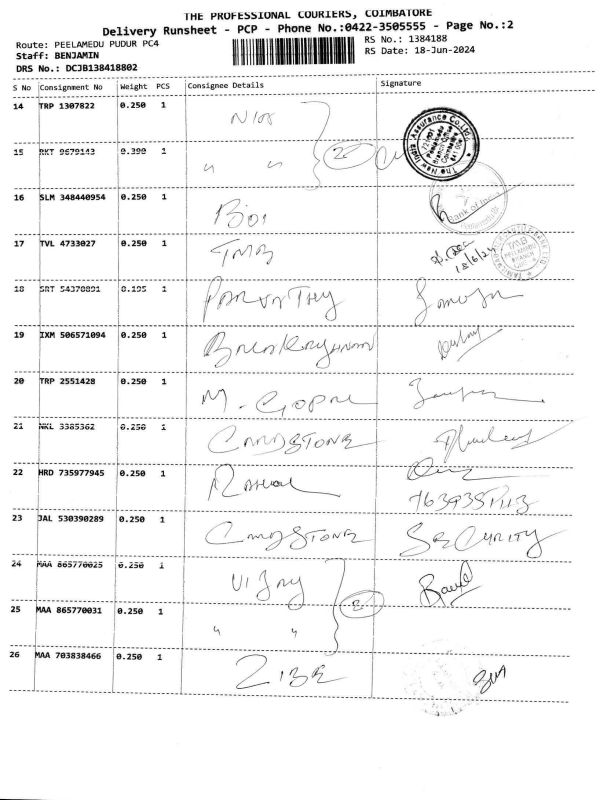 THE PROFESSIONAL COURIERS, COIMBATORE
Delivery Runsheet - PCP - Phone No.:0422-3505555 - Page No.:2
Route: PEELAMEDU PUDUR PC4 RS No.: 1384188
Staff: BENJAMIN RS Date: 18-Jun-2024
DRS No.: DCJB138418802
S No Consignment No Weight PCS Consignee Details Signature
14 TRP 1307822 0.250 1 NIA
The New India Assurance Co.Ltd.
15 RKT 9679143 0.300 1 " " 2
16 SLM 348440954 0.250 1 BOI
Bank of India
17 TVL 4733027 0.250 1 TMB
18/6/24
TMB
18 SRT 54370891 0.195 1 PARVATHY
19 IXM 506571094 0.250 1 BALAKRISHNAN
20 TRP 2551428 0.250 1 M. GOPAL
21 NKL 3385362 0.250 1
22 HRD 735977945 0.250 1 RAHUL
23 JAL 530390289 0.250 1 SECURITY
24 MAA 865770025 0.250 1 VIJAY
25 MAA 865770031 0.250 1 " " 2
26 MAA 703838466 0.250 1 ZIBE